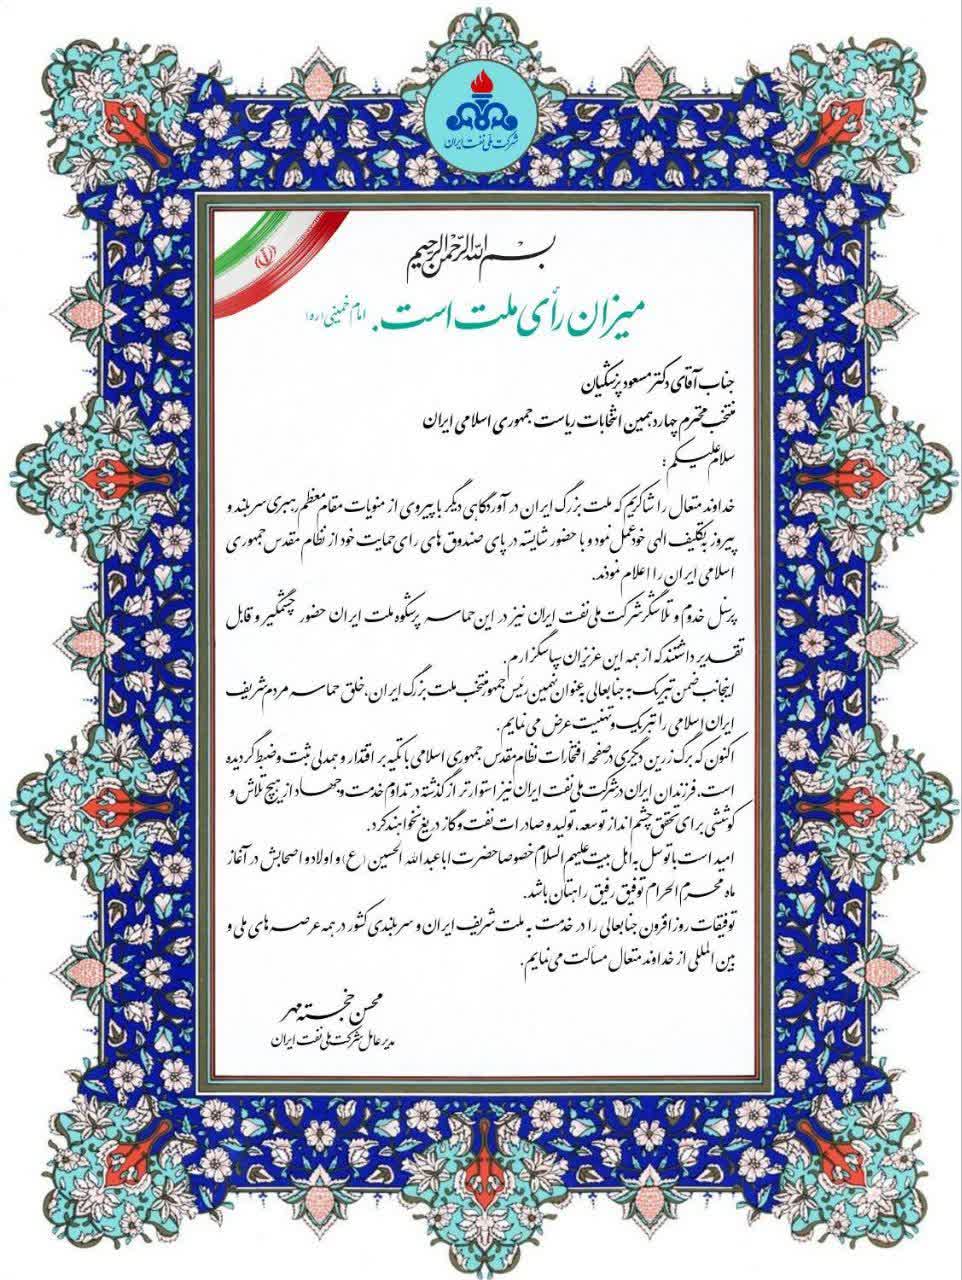 شرکت ملی نفت ایران
بسم الله الرحمن الرحیم
میزان رأی ملت است. امام خمینی (ره)
جناب آقای دکتر مسعود پزشکیان
منتخب محترم چهاردهمین انتخابات ریاست جمهوری اسلامی ایران
سلام علیکم:
خداوند متعال را شاکریم که ملت بزرگ ایران در آوردگاهی دیگر با پیروی از منویات مقام معظم رهبری سربلند و
پیروز به تکلیف الهی خود عمل نمود و با حضور شایسته در پای صندوق های رای حمایت خود از نظام مقدس جمهوری
اسلامی ایران را اعلام نمودند.
پرسنل خدوم و تلاشگر شرکت ملی نفت ایران نیز در این حماسه پرشکوه ملت ایران حضور چشمگیر و قابل
تقدیر داشتند که از همه این عزیزان سپاسگزارم.
اینجانب ضمن تبریک به جنابعالی به عنوان نهمین رئیس جمهور منتخب ملت بزرگ ایران، خلق حماسه مردم شریف
ایران اسلامی را تبریک و تهنیت عرض می نمایم.
اکنون که برگ زرین دیگری در صفحه افتخارات نظام مقدس جمهوری اسلامی با تکیه بر اقتدار و همدلی ثبت و ضبط گردیده
است، فرزندان ایران در شرکت ملی نفت ایران نیز استوارتر از گذشته در تداوم خدمت و جهاد از هیچ تلاش و
کوششی برای تحقق چشم انداز توسعه، تولید و صادرات نفت و گاز دریغ نخواهند کرد.
امید است با توسل به اهل بیت علیهم السلام خصوصا حضرت اباعبدالله الحسین (ع) و اولاد و اصحابش در آغاز
ماه محرم الحرام توفیق رفیق راهتان باشد.
توفیقات روزافزون جنابعالی را در خدمت به ملت شریف ایران و سربلندی کشور در همه عرصه های ملی و
بین المللی از خداوند متعال مسألت می نمایم.
محسن خجسته مهر
مدیرعامل شرکت ملی نفت ایران